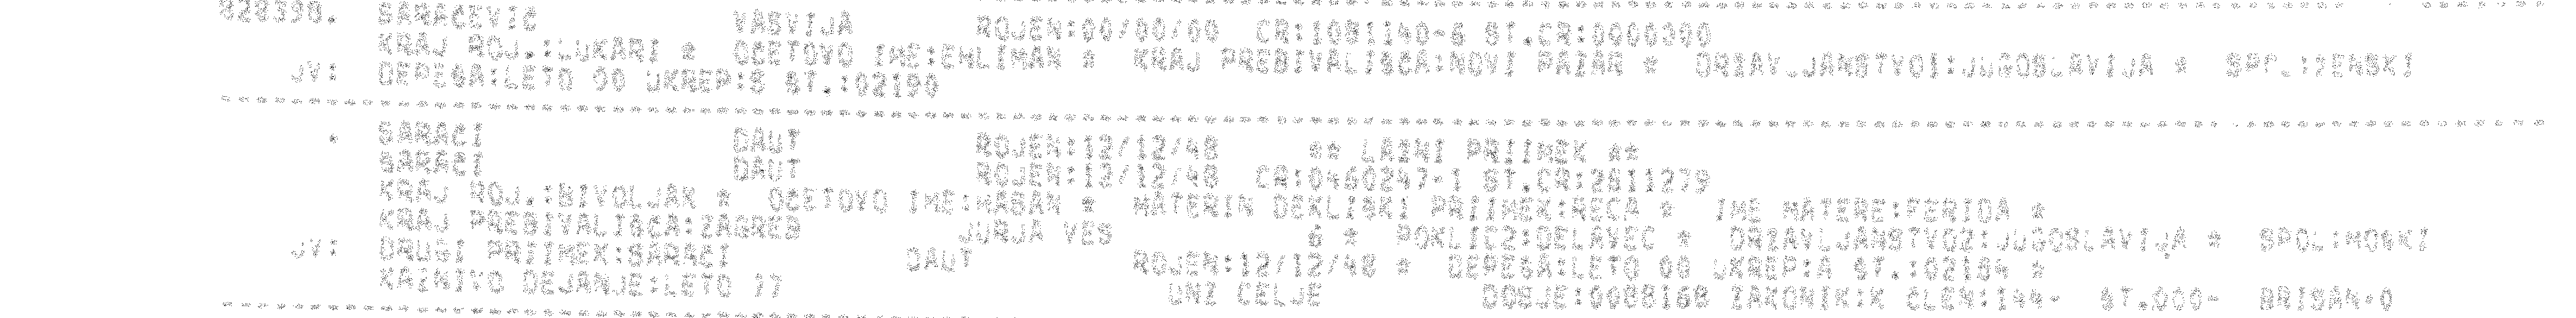 828398. SARACEVIC VASVIJA ROJEN:00/00/60 CR:1081140-6 ST.CR:0000000
KRAJ ROJ.:LUKARI * OCETOVO IME:EMLIMAN * KRAJ PREBIVALISCA:NOVI PAZAR * DRZAVLJANSTVO1:JUGOSLAVIJA * SPOL:ZENSKI
JV: DEPESA:LETO 90 UKREP:S ST.:02190
* SARACI DAUT ROJEN:12/12/48 ** LAZNI PRIIMEK **
SARACI DAUT ROJEN:12/12/48 CR:0460247-1 ST.CR:2811279
KRAJ ROJ.:BIVOLJAK * OCETOVO IME:HASAN * MATERIN DEKLISKI PRIIMEK:RECA * IME MATERE:FERIDA *
KRAJ PREBIVALISCA:ZAGREB JURJA VES 6 * POKLIC2:DELAVEC * DRZAVLJANSTVO2:JUGOSLAVIJA * SPOL:MOSKI
JV: DRUGI PRIIMEK:SARACI DAUT ROJEN:12/12/48 * DEPESA:LETO 00 UKREP:A ST.:02184 *
KAZNIVO DEJANJE:LETO 77 UNZ CELJE DOSJE:0008168 ZAKONIK:K CLEN:144- ST.000- BRISAN-0